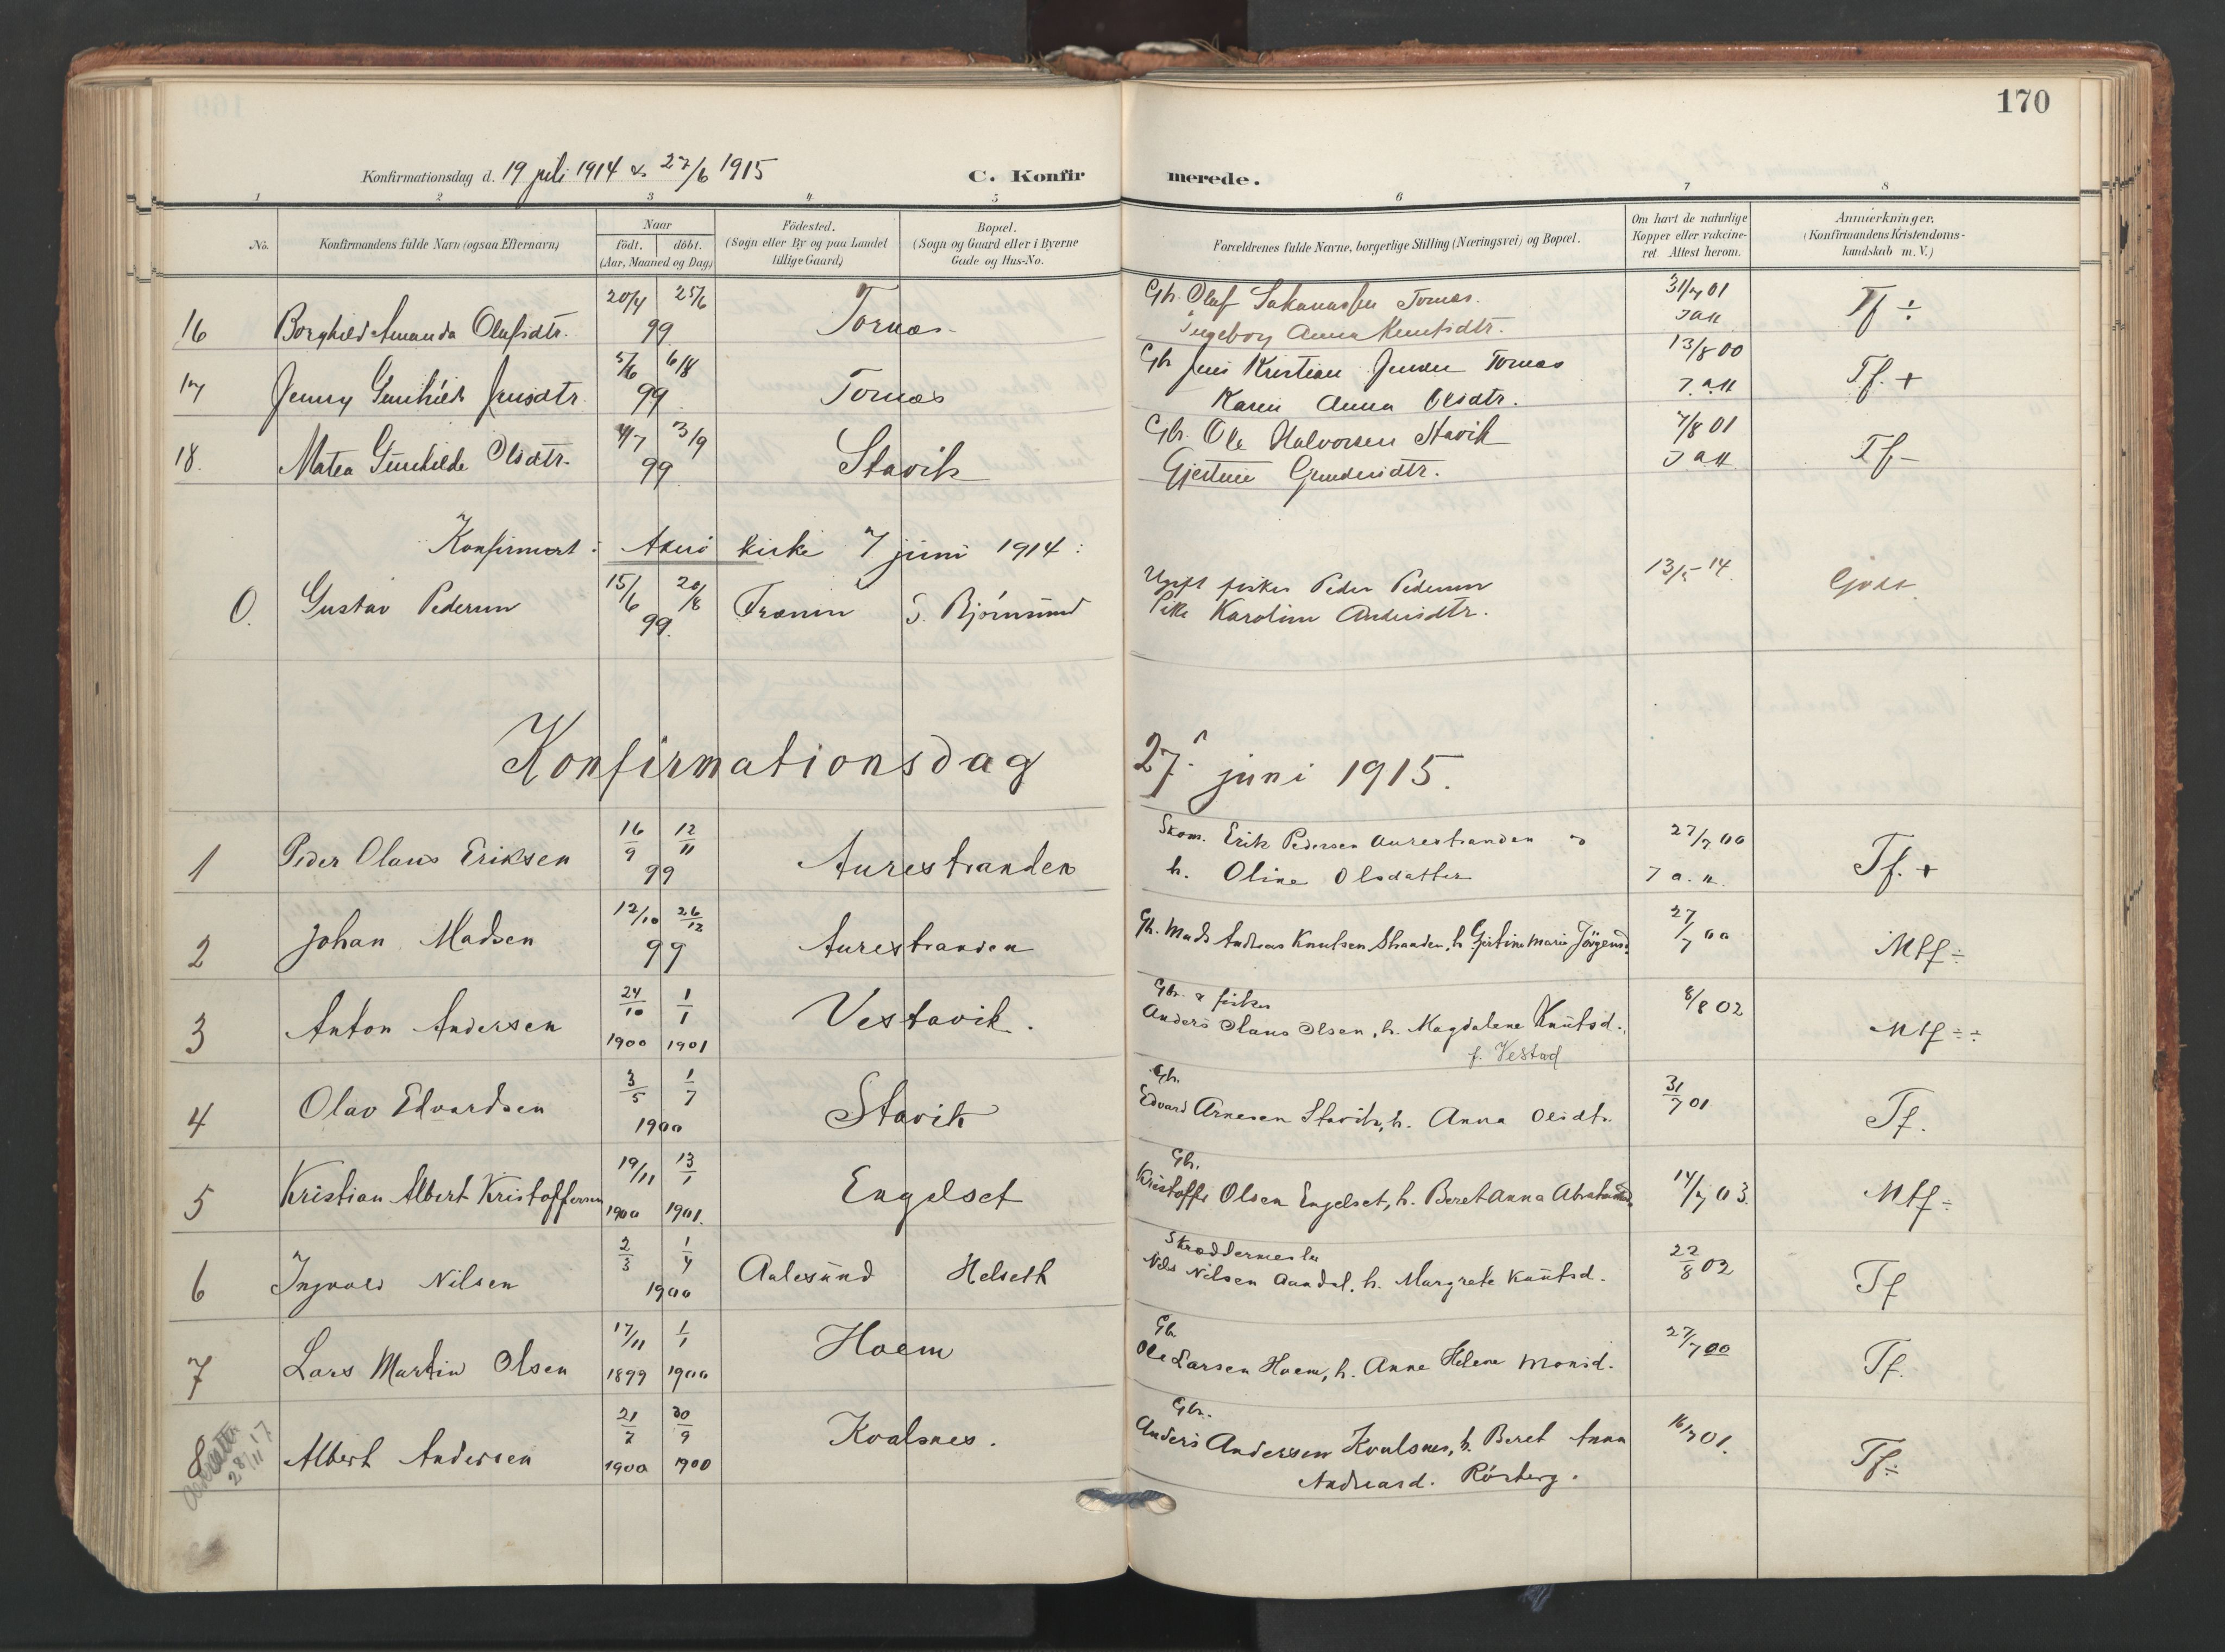 170
Konfirmationsdag d. 19 juli 1914 & 27/6 1915
C. Konfirmerede.
1 2 3 4 5 6 7 8
No.
Konfirmandens fulde Navn (ogsaa Efternavn)
Naar
født. døbt.
(Aar, Maaned og Dag)
Födested.
(Sogn eller By og paa Landet
tillige Gaard)
Bopæl.
(Sogn og Gaard eller i Byerne
Gade og Hus-No.
Forældrenes fulde Navne, borgerlige Stilling (Næringsvei) og Bopæl.
Om havt de naturlige
Kopper eller vakcine-
ret. Attest herom.
Anmærkninger.
(Konfirmandens Kristendoms-
kundskab m. V.)
16 Borghild Amanda Olafsdtr. 20/4 25/6 99 Tornes Gbr. Olaf Tornes. 31/7 01 Tf ÷
Ingebor Anna Knutsdtr.
17 Jenny Gunhild Jensdtr 5/6 6/8 99 Tornes Gbr Jens Kristian Jensen Tornes 13/8 00 Tf. +
Karen Anna Olsdtr.
18. Matea Gunhilde Olsdtr. 4/7 3/9 99 Stavik Gbr. Ole Halvorsen Stavik 7/8 01 Tf -
Konfirmert i Akerö kirke 7 juni 1914:
0. Gustav Pedersen 15/6 20/8 99. Frænen S. Bjørnsund Ugift fisker Peder Pedersen 13/5 14. Godt
Pike Karoline Andersdtr.
Konfirmationsdag 27. juni 1915.
1 Peder Olaus Eriksen 16/9 12/11 99 Aurestranden Skom. Erik Pedersen Aurestranden 27/7 00 Tf. +
h. Oline Olsdatter
2 Johan Madsen 12/10 26/12 99 Aurestranden Gbr. Mads Andreas Knutsen Stranden, h. Gjertine Marie Jörgensd. 27/7 00 Mtf ÷
3 Anton Andersen 24/10 1900 1/1 1901 Vestavik. Gbr. & fisker 8/8 02 Mtf ÷ ÷
Anders Olaus Olsen, h. Magdalene Knutsd.
f. Vestad
4 Olav Edvardsen 3/5 1/7 1900 Stavik Gbr. 31/7 01 Tf.
Edvard Arnesen Stavik, h. Anna Olsdtr.
5 Kristian Albert Kristoffersen 19/11 1900 13/1 1901. Engelset Gbr. 14/7 03. Mtf ÷
Kristoffer Olsen Engelset, h. Beret Anna
6 Ingvald Nilsen 2/3 1/4 1900 Aalesund Helseth Skræddermester 22/8 02 Tf
Nils Nilsen Aandal, h. Margrete Knutsd.
7 Lars Martin Olsen 17/11 1899 1/1 1900 Hoem Gbr 27/7 00 Tf.
Ole Larsen Hoem, h. Anne Helene Monsd.
8 28/11 17 Albert Andersen 21/7 1900 30/9 1900 Kvalsnes. Gbr. 16/7 01. Tf ÷
Anders Andersen Kvalsnes, h. Beret Anna
Andreasd. Rösberg.